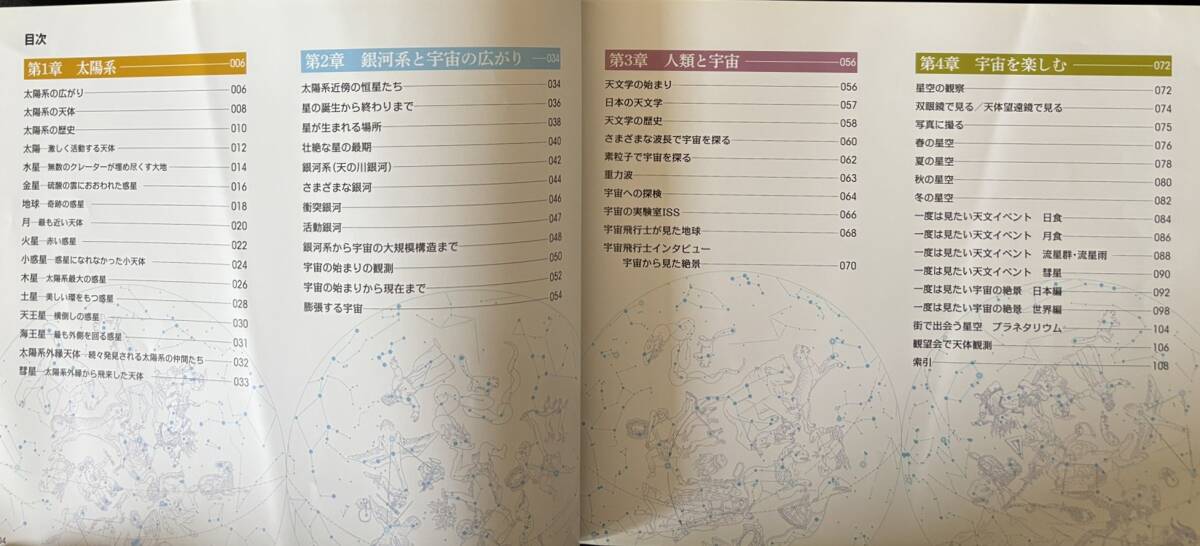 目次
第1章 太陽系 006
太陽系の広がり 006
太陽系の天体 008
太陽系の歴史 010
太陽―激しく活動する天体 012
水星―無数のクレーターが埋め尽くす大地 014
金星―硫酸の雲におおわれた惑星 016
地球―奇跡の惑星 018
月―最も近い天体 020
火星―赤い惑星 022
小惑星―惑星になれなかった小天体 024
木星―太陽系最大の惑星 026
土星―美しい環をもつ惑星 028
天王星―横倒しの惑星 030
海王星―最も外側を回る惑星 031
太陽系外縁天体―続々発見される太陽系の仲間たち 032
彗星―太陽系外縁から飛来した天体 033
第2章 銀河系と宇宙の広がり 034
太陽系近傍の恒星たち 034
星の誕生から終わりまで 036
星が生まれる場所 038
壮絶な星の最期 040
銀河系(天の川銀河) 042
さまざまな銀河 044
衝突銀河 046
活動銀河 047
銀河系から宇宙の大規模構造まで 048
宇宙の始まりの観測 050
宇宙の始まりから現在まで 052
膨張する宇宙 054
第3章 人類と宇宙 056
天文学の始まり 056
日本の天文学 057
天文学の歴史 058
さまざまな波長で宇宙を探る 060
素粒子で宇宙を探る 062
重力波 063
宇宙への探検 064
宇宙の実験室ISS 066
宇宙飛行士が見た地球 068
宇宙飛行士インタビュー
宇宙から見た絶景 070
第4章 宇宙を楽しむ 072
星空の観察 072
双眼鏡で見る／天体望遠鏡で見る 074
写真に撮る 075
春の星空 076
夏の星空 078
秋の星空 080
冬の星空 082
一度は見たい天文イベント 日食 084
一度は見たい天文イベント 月食 086
一度は見たい天文イベント 流星群・流星雨 088
一度は見たい天文イベント 彗星 090
一度は見たい宇宙の絶景 日本編 092
一度は見たい宇宙の絶景 世界編 098
街で出会う星空 プラネタリウム 104
観望会で天体観測 106
索引 108